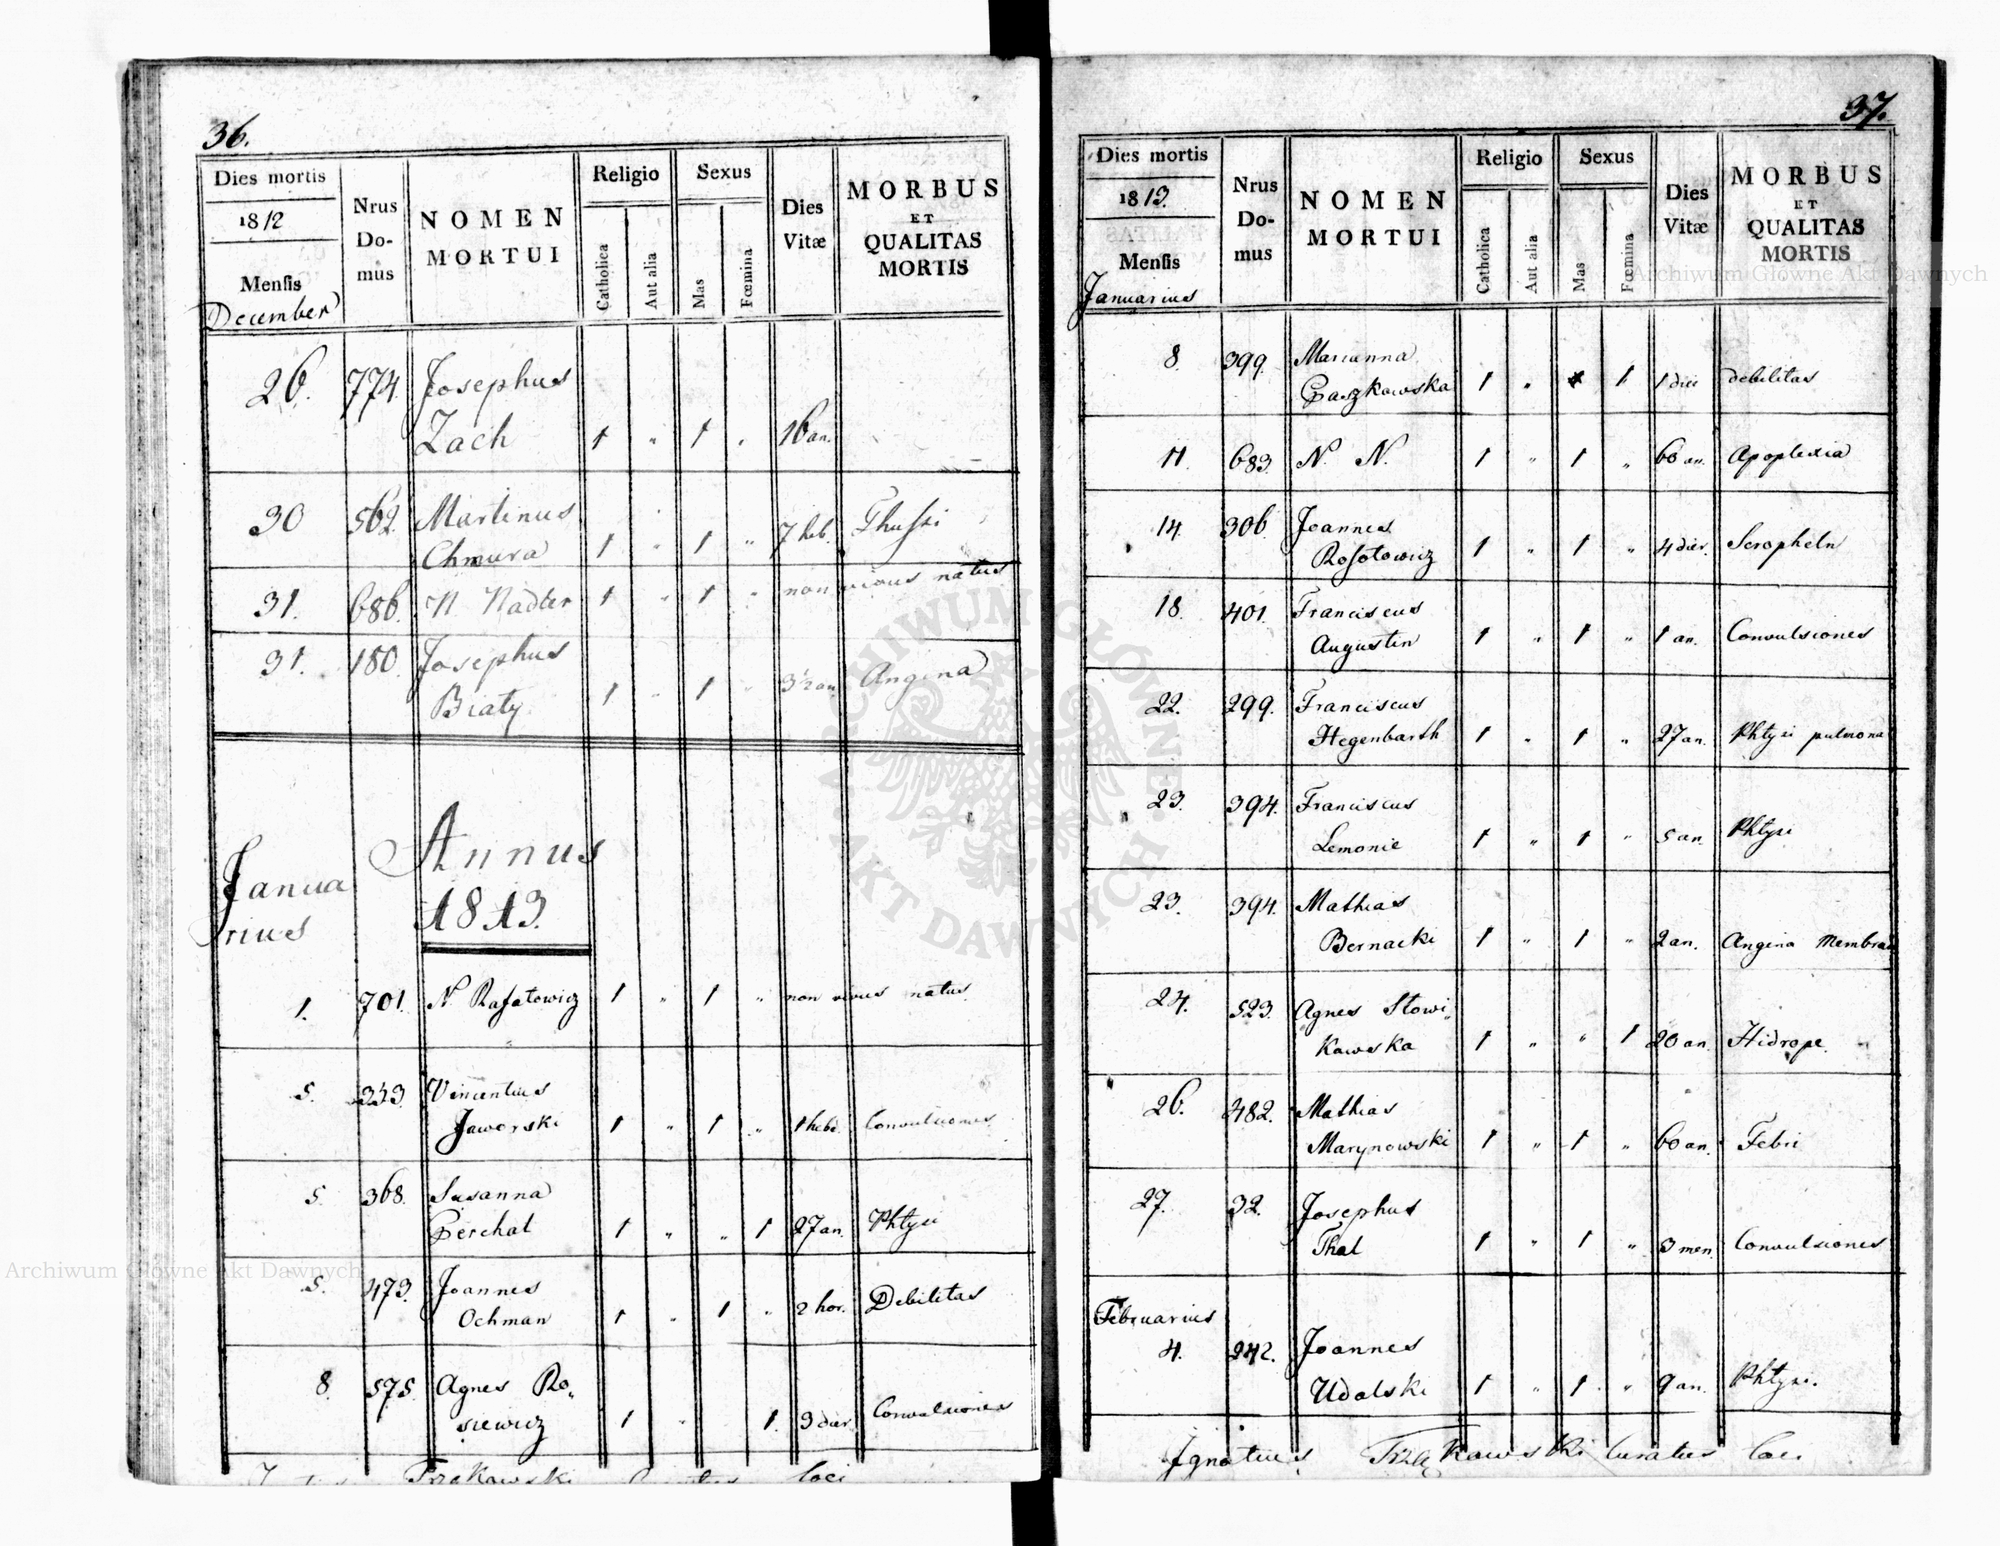 36.
Dies mortis
1812
Mensis
December
Nrus
Do-
mus
NOMEN
MORTUI
Religio
Catholica
Aut alia
Sexus
Mas
Fœmina
Dies
Vitæ
MORBUS
ET
QUALITAS
MORTIS
26. 774. Josephus
Zach 1 „ 1 „ 16 an.
30 562. Martinus
Chmura 1 „ 1 „ 7 heb. Thussi
31. 686. N Nadter 1 „ 1 „ non vivus natus
31. 180. Josephus
Biały 1 „ 1 „ 3 1/2 an. Angina
Janua
rius
Annus
1813.
1. 701. N Rafatowicz 1 „ 1 „ non vivus natus
5. 333 Vincentius
Jaworski 1 „ 1 „ 1 hebd. Convulsiones
5. 368. Susanna
Perchal 1 „ „ 1 27 an. Phtysi
5. 473. Joannes
Ochman 1 „ 1 „ 2 hor. Debilitas
8. 575. Agnes Ro„
siewicz 1 „ 1 3 dier Convulsiones
Trzakowski Curatus loci
37.
Dies mortis
1813.
Mensis
Januarius
Nrus
Do-
mus
NOMEN
MORTUI
Religio
Catholica
Aut alia
Sexus
Mas
Fœmina
Dies
Vitæ
MORBUS
ET
QUALITAS
MORTIS
8. 399. Marianna
Paszkowska 1 „ 1 1 diei debilitas
11. 683. N. N. 1 „ 1 „ 60 an. Apoplexia
14. 306. Joannes
Rosotowicz 1 „ 1 „ 4 dier. Scropheln
18. 401. Franciscus
Augustin 1 „ 1 „ 1 an. Convulsiones
22. 299. Franciscus
Hegenbarth 1 „ 1 „ 27 an. Phtysi pulmona
23. 394. Franciscus
Lemonie 1 „ 1 „ 5 an. Phtysi
23. 394. Mathias
Bernacki 1 „ 1 „ 2 an. Angina Membra
24. 523. Agnes Słowi„
kowska 1 „ „ 1 20 an. Hidrope.
26. 482. Mathias
Marynowski 1 „ 1 „ 60 an. Febri
27. 32. Josephus
Thal 1 „ 1 „ 3 men. Convulsiones
Februarius
4. 242. Joannes
Udalski 1 „ 1 „ 9 an. Phtysi.
Ignatius Trzakowski Curatus loci
Archiwum Główne Akt Dawnych
ARCHIWUM GŁÓWNE AKT DAWNYCH
Archiwum Główne Akt Dawnych